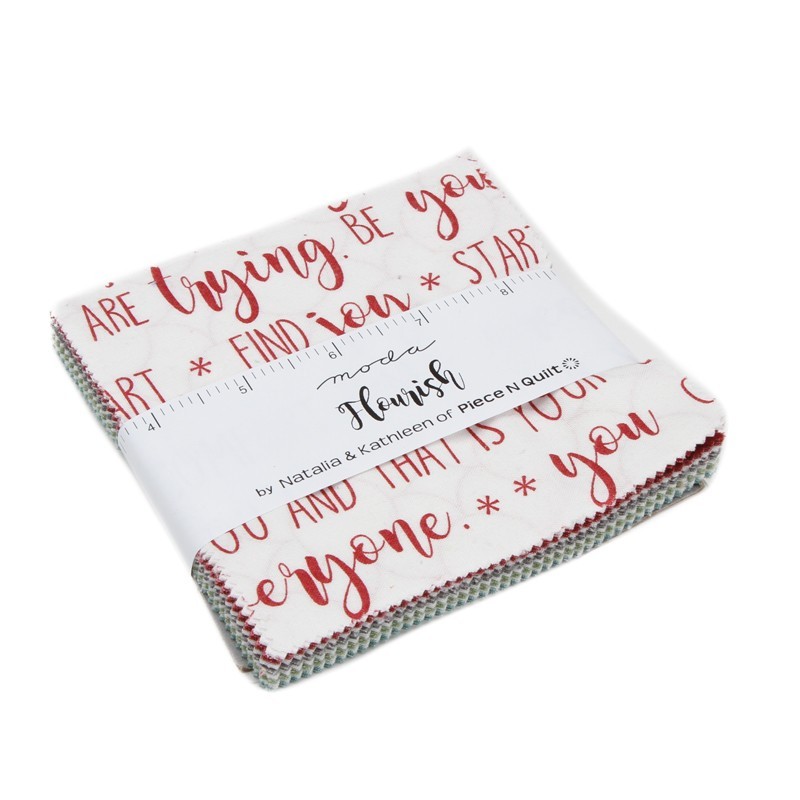 you
ARE trying. BE
ART * FIND joy * START
4 5 6 7 8
moda
Flourish
by Natalia & Kathleen of Piece N Quilt
AND THAT IS YOUR
eryone. * * you